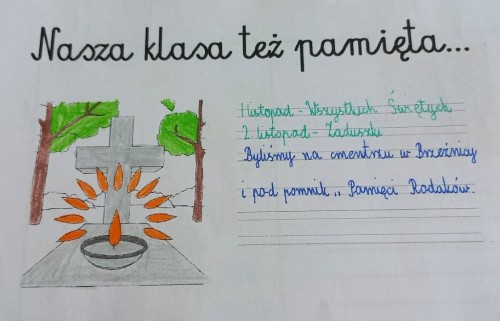 Nasza klasa też pamięta...
1 listopad - Wszystkich Świętych
2 listopad - Zaduszki
Byliśmy na cmentrzu w Brzeźnicy
i pod pomnik ,, Pamięci Rodaków.